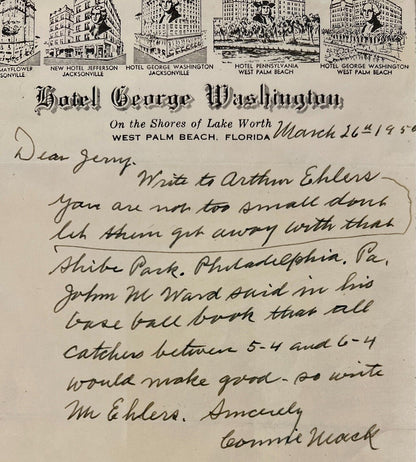 MAYFLOWER
NEW HOTEL JEFFERSON
JACKSONVILLE
HOTEL GEORGE WASHINGTON
JACKSONVILLE
HOTEL PENNSYLVANIA
WEST PALM BEACH
HOTEL GEORGE WASHINGTON
WEST PALM BEACH
Hotel George Washington
On the Shores of Lake Worth
WEST PALM BEACH, FLORIDA March 26th 195
Dear Jerry.
Write to Arthur Ehlers
You are not too small dont
let them get away with that
Shibe Park. Philadelphia. Pa.
John M Ward said in his
base ball book that all
catchers between 5-4 and 6-4
would make good - so write
Mr Ehlers. Sincerely
Connie Mack